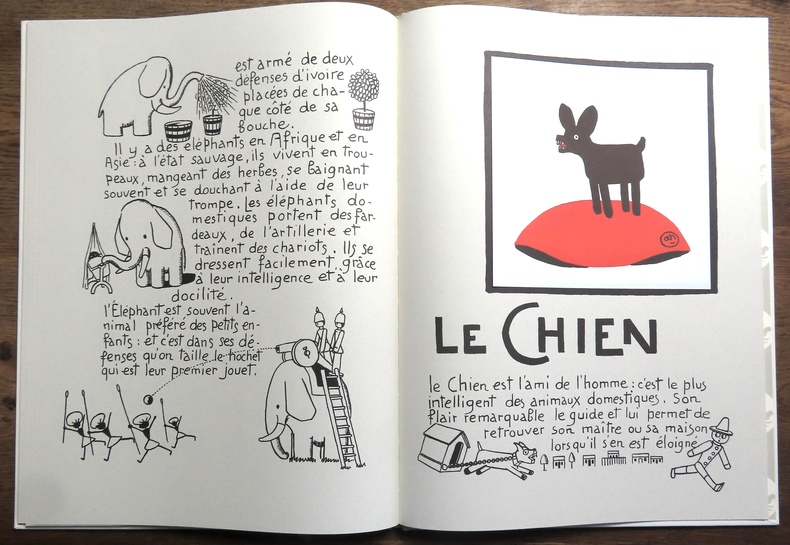 est armé de deux
défenses d'ivoire
placées de cha-
que côté de sa
bouche.
Il y a des éléphants en Afrique et en
Asie : à l'état sauvage, ils vivent en trou-
peaux, mangeant des herbes, se baignant
souvent et se douchant à l'aide de leur
trompe. Les éléphants do-
mestiques portent des far-
deaux, de l'artillerie et
traînent des chariots. Ils se
dressent facilement, grâce
à leur intelligence et à leur
docilité.
l'Éléphant est souvent l'a-
nimal préféré des petits en-
fants : et c'est dans ses dé-
fenses qu'on taille le hochet
qui est leur premier jouet.
LE CHIEN
le Chien est l'ami de l'homme : c'est le plus
intelligent des animaux domestiques. Son
flair remarquable le guide et lui permet de
retrouver son maître ou sa maison
lorsqu'il s'en est éloigné